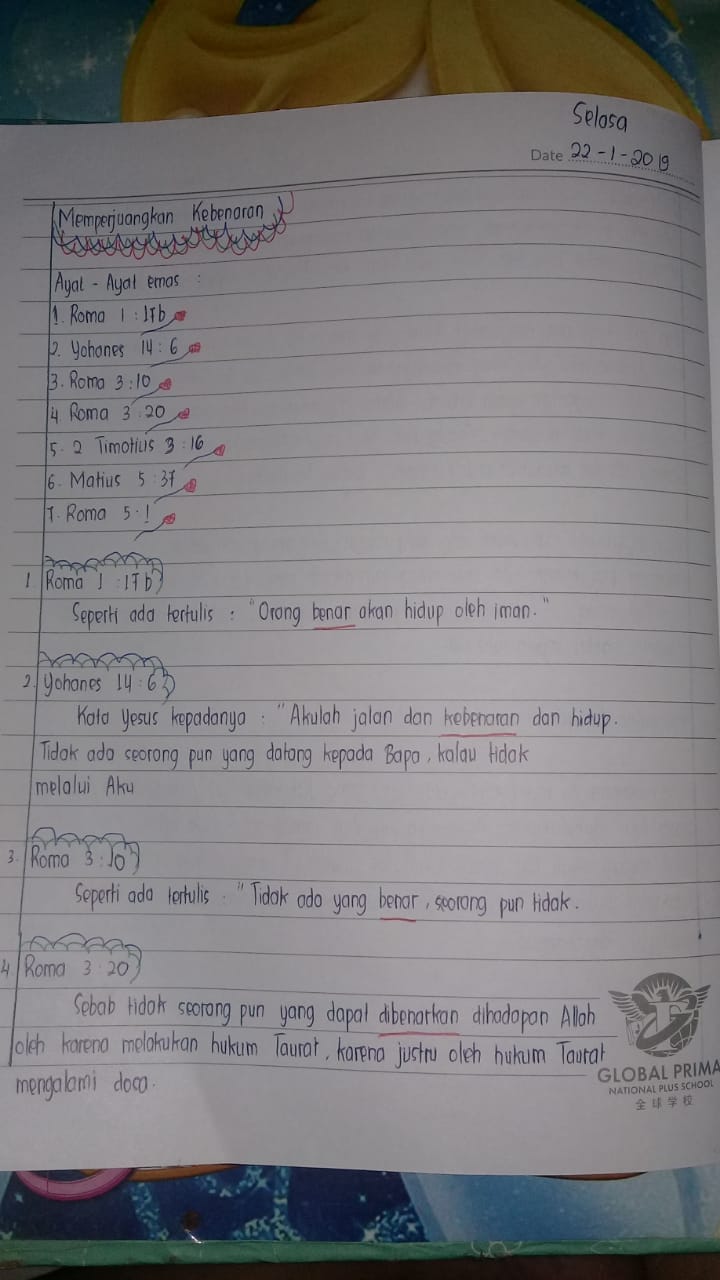 Selasa
Date 22-1-2019
Memperjuangkan Kebenaran
Ayat - Ayat emas :
1. Roma 1 : 17b
2. Yohanes 14 : 6
3. Roma 3 : 10
4. Roma 3 : 20
5. 2 Timotius 3 : 16
6. Matius 5 : 37
7. Roma 5 : 1
1 Roma 1 : 17b
Seperti ada tertulis : "Orang benar akan hidup oleh iman."
2. Yohanes 14 : 6
Kata Yesus kepadanya : "Akulah jalan dan kebenaran dan hidup.
Tidak ada seorang pun yang datang kepada Bapa, kalau tidak
melalui Aku
3. Roma 3 : 10
Seperti ada tertulis : "Tidak ada yang benar, seorang pun tidak.
4. Roma 3 : 20
Sebab tidak seorang pun yang dapat dibenarkan dihadapan Allah
oleh karena melakukan hukum Taurat, karena justru oleh hukum Taurat
mengalami dosa.
GLOBAL PRIMA
NATIONAL PLUS SCHOOL
全球学校